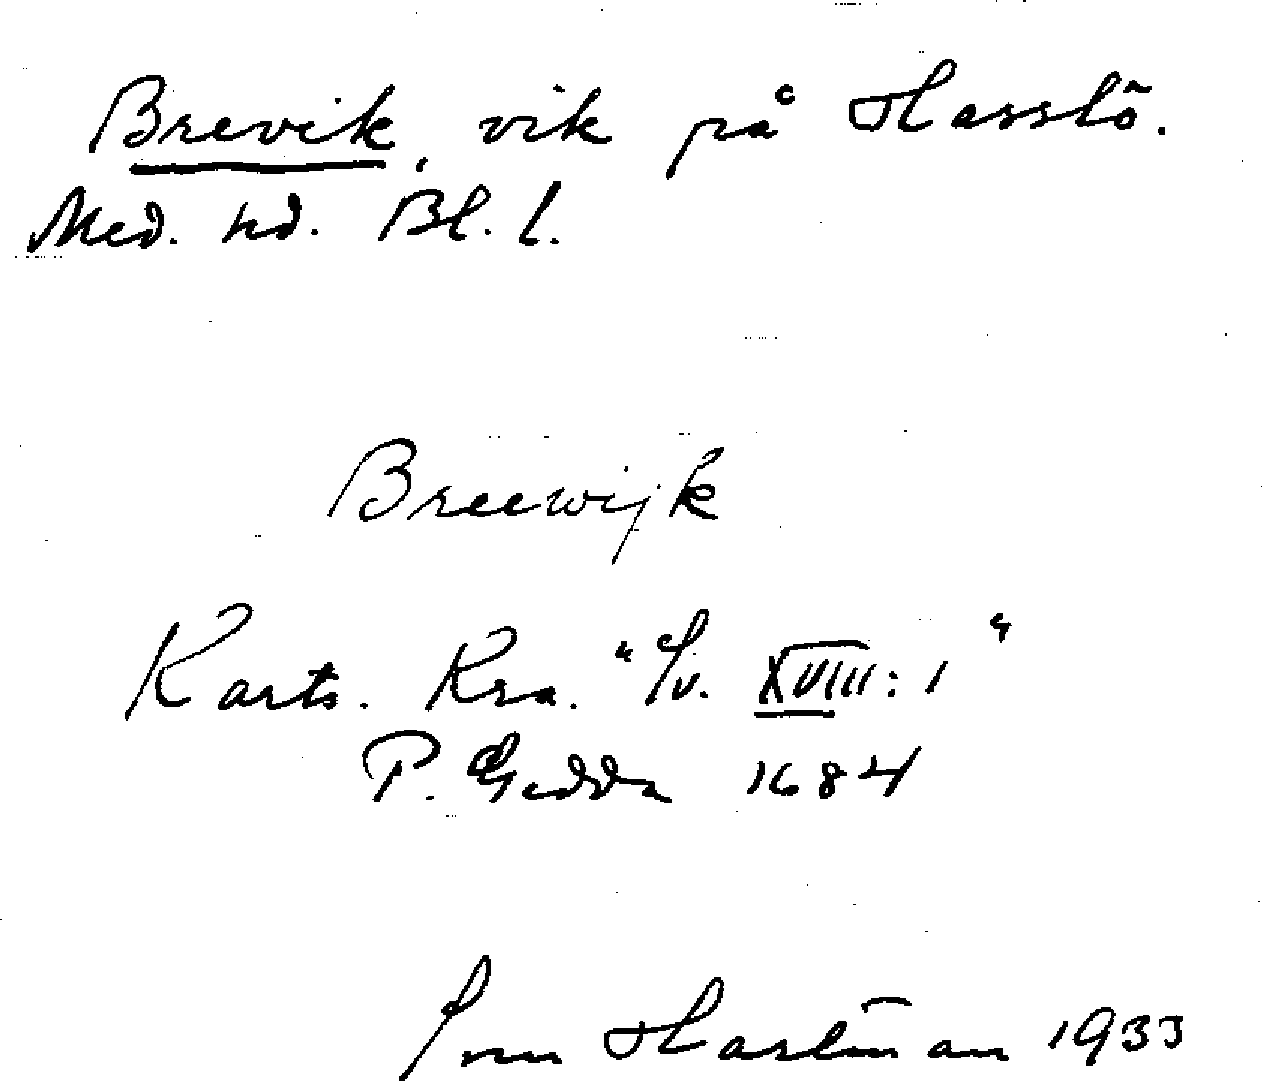 Brevik, vik på Hasslö.
Med. hd. Bl. l.
Breewijk
Karts. Kra. "Sv. XVIII: 1"
P. Gedda 1684
Hartman 1933